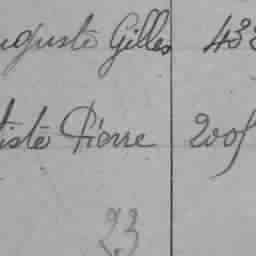 uguste Gilles 433
tiste Pierre 2005
23